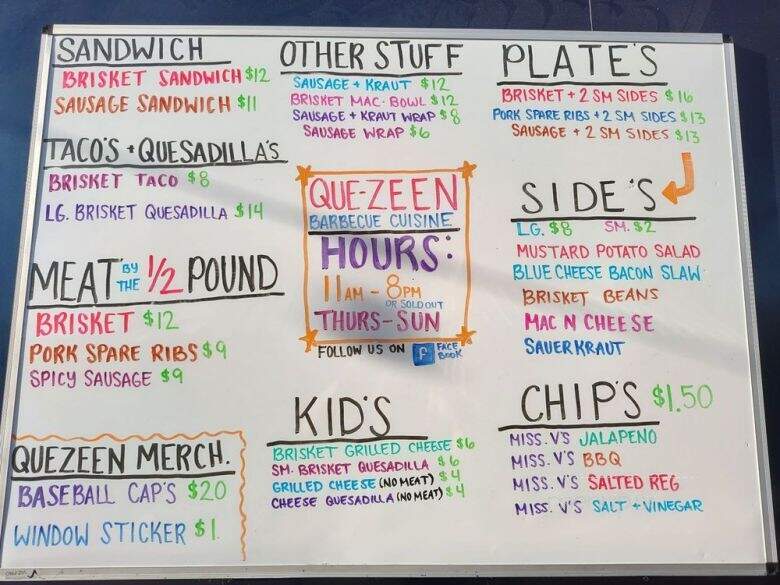 SANDWICH
BRISKET SANDWICH $12
SAUSAGE SANDWICH $11
TACO'S + QUESADILLA'S
BRISKET TACO $8
LG. BRISKET QUESADILLA $14
MEAT BY THE 1/2 POUND
BRISKET $12
PORK SPARE RIBS $9
SPICY SAUSAGE $9
QUEZEEN MERCH.
BASEBALL CAP'S $20
WINDOW STICKER $1.
OTHER STUFF
SAUSAGE + KRAUT $12
BRISKET MAC-BOWL $12
SAUSAGE + KRAUT WRAP $8
SAUSAGE WRAP $6
QUE-ZEEN
BARBECUE CUISINE
HOURS:
11AM - 8PM
OR SOLD OUT
THURS-SUN
FOLLOW US ON f FACE BOOK
KID'S
BRISKET GRILLED CHEESE $6
SM. BRISKET QUESADILLA $6
GRILLED CHEESE (NO MEAT) $4
CHEESE QUESADILLA (NO MEAT) $4
PLATE'S
BRISKET + 2 SM SIDES $16
PORK SPARE RIBS + 2 SM SIDES $13
SAUSAGE + 2 SM SIDES $13
SIDE'S
LG. $8 SM. $2
MUSTARD POTATO SALAD
BLUE CHEESE BACON SLAW
BRISKET BEANS
MAC N CHEESE
SAUERKRAUT
CHIP'S $1.50
MISS. V'S JALAPENO
MISS. V'S BBQ
MISS. V'S SALTED REG
MISS. V'S SALT + VINEGAR